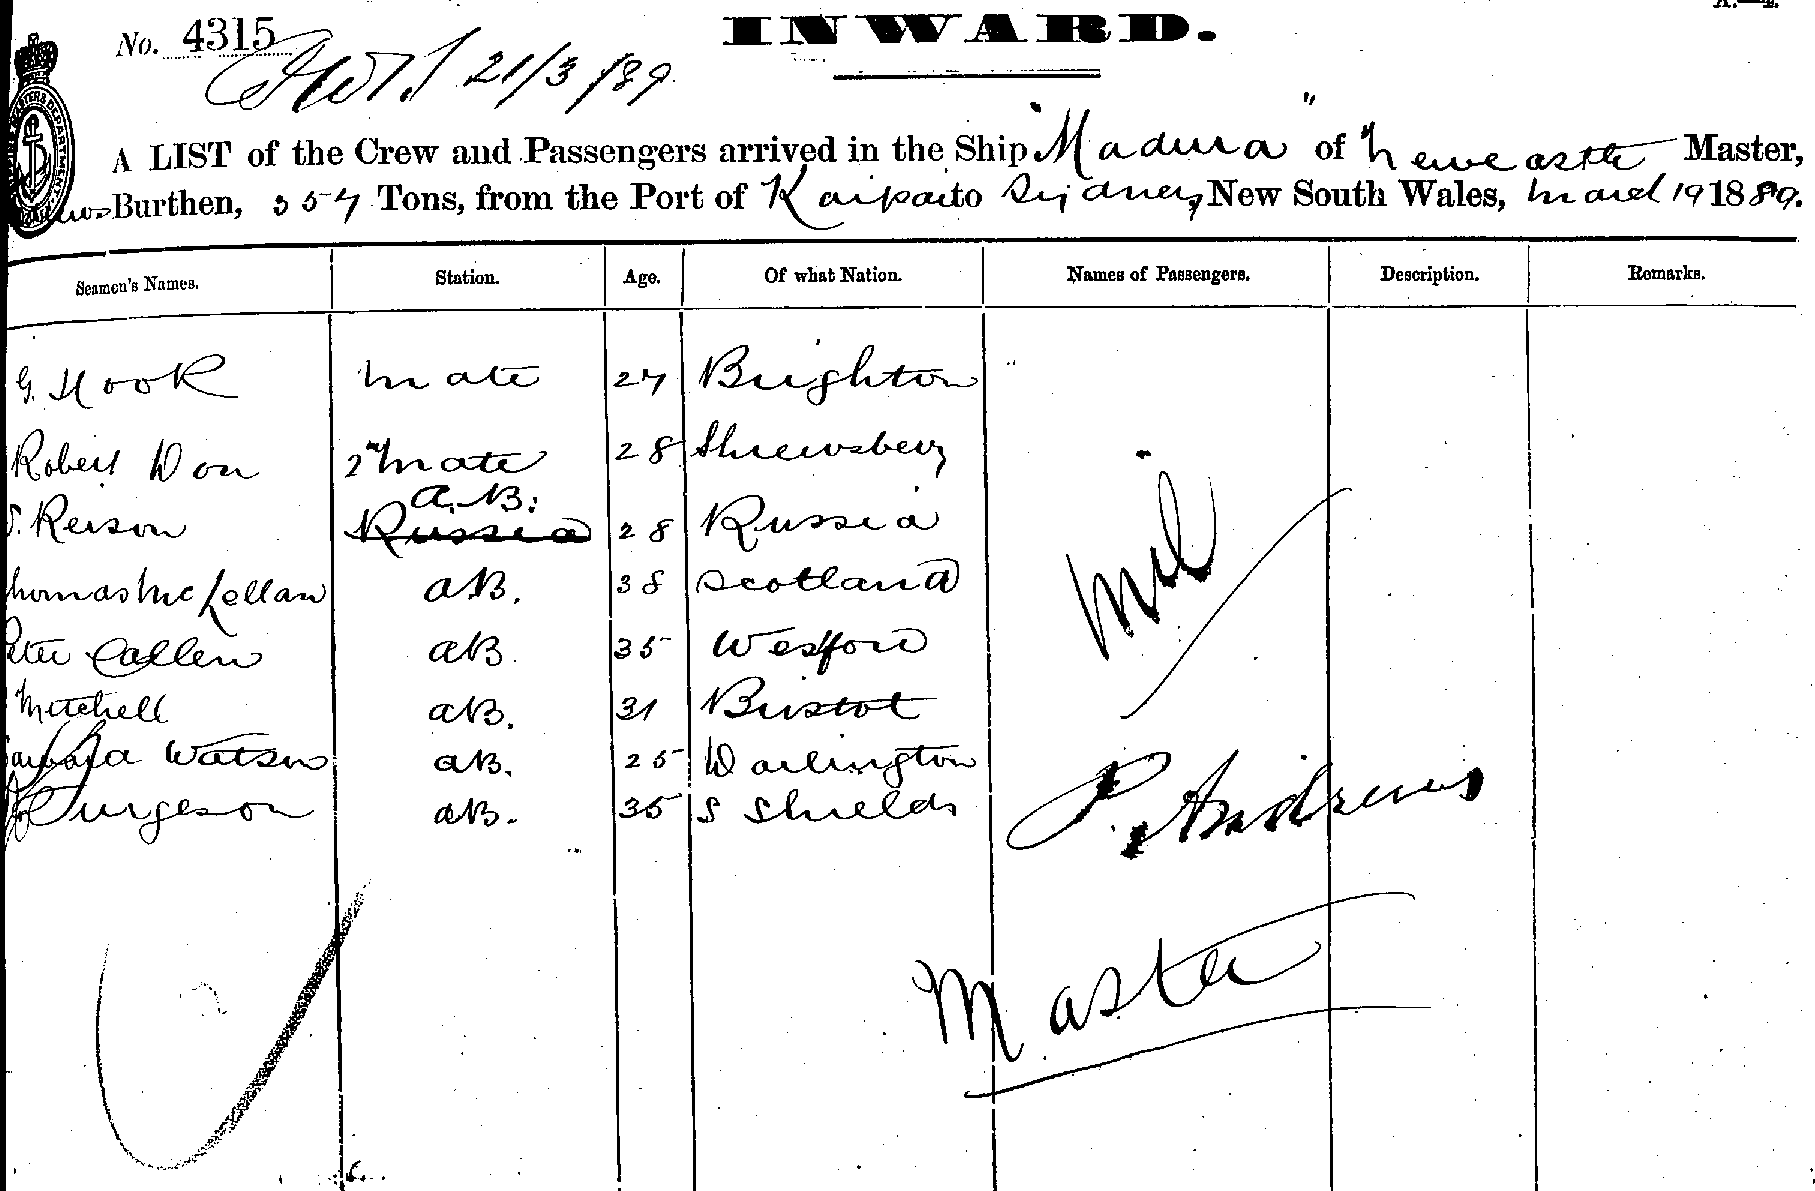 No. 4315 INWARD.
21/3/89
A LIST of the Crew and Passengers arrived in the Ship "Madura" of Newcastle Master,
Burthen, 357 Tons, from the Port of Kaipara to Sydney, New South Wales, March 19 1889.
Seamen's Names. Station. Age. Of what Nation. Names of Passengers. Description. Remarks.
G. Hook Mate 27 Brighton
Robert Don 2nd Mate 28 Shrewsbery
A.B.
Reison Russia 28 Russia
Thomas McLellan AB. 38 Scotland
Peter Callen AB. 35 Wexford
Mitchell AB. 31 Bristol
Watson AB. 25 Darlington
Turgeson AB. 35 S Shields
Nil
P. Andrews
Master